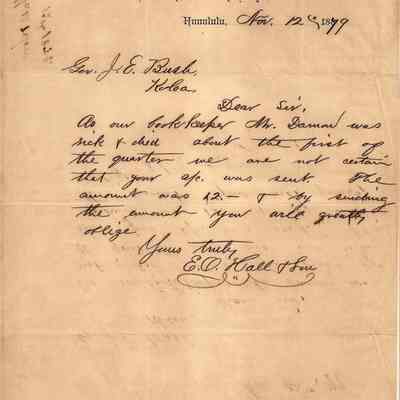 Honolulu, Nov. 12th, 1879
Gov. J. E. Bush,
Koloa.
Dear Sir,
As our bookkeeper Mr. Damon was
sick & died about the first of
the quarter we are not certain
that your a/c. was sent. The
amount was 12.– & by sending
the amount you will greatly
oblige
Yours truly,
E. O. Hall & Son